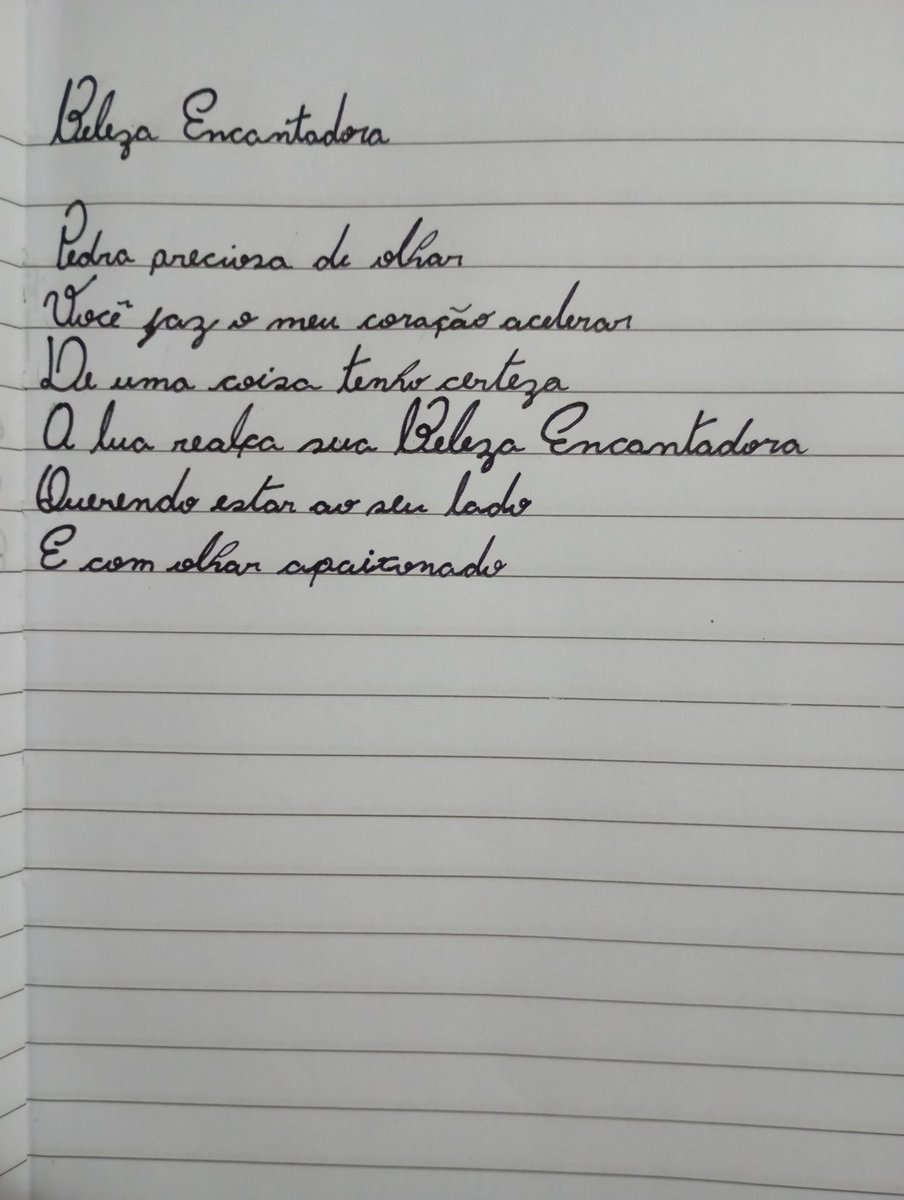 Beleza Encantadora
Pedra preciosa de olhar
Você faz o meu coração acelerar
De uma coisa tenho certeza
A lua realça sua Beleza Encantadora
Querendo estar ao seu lado
E com olhar apaixonado